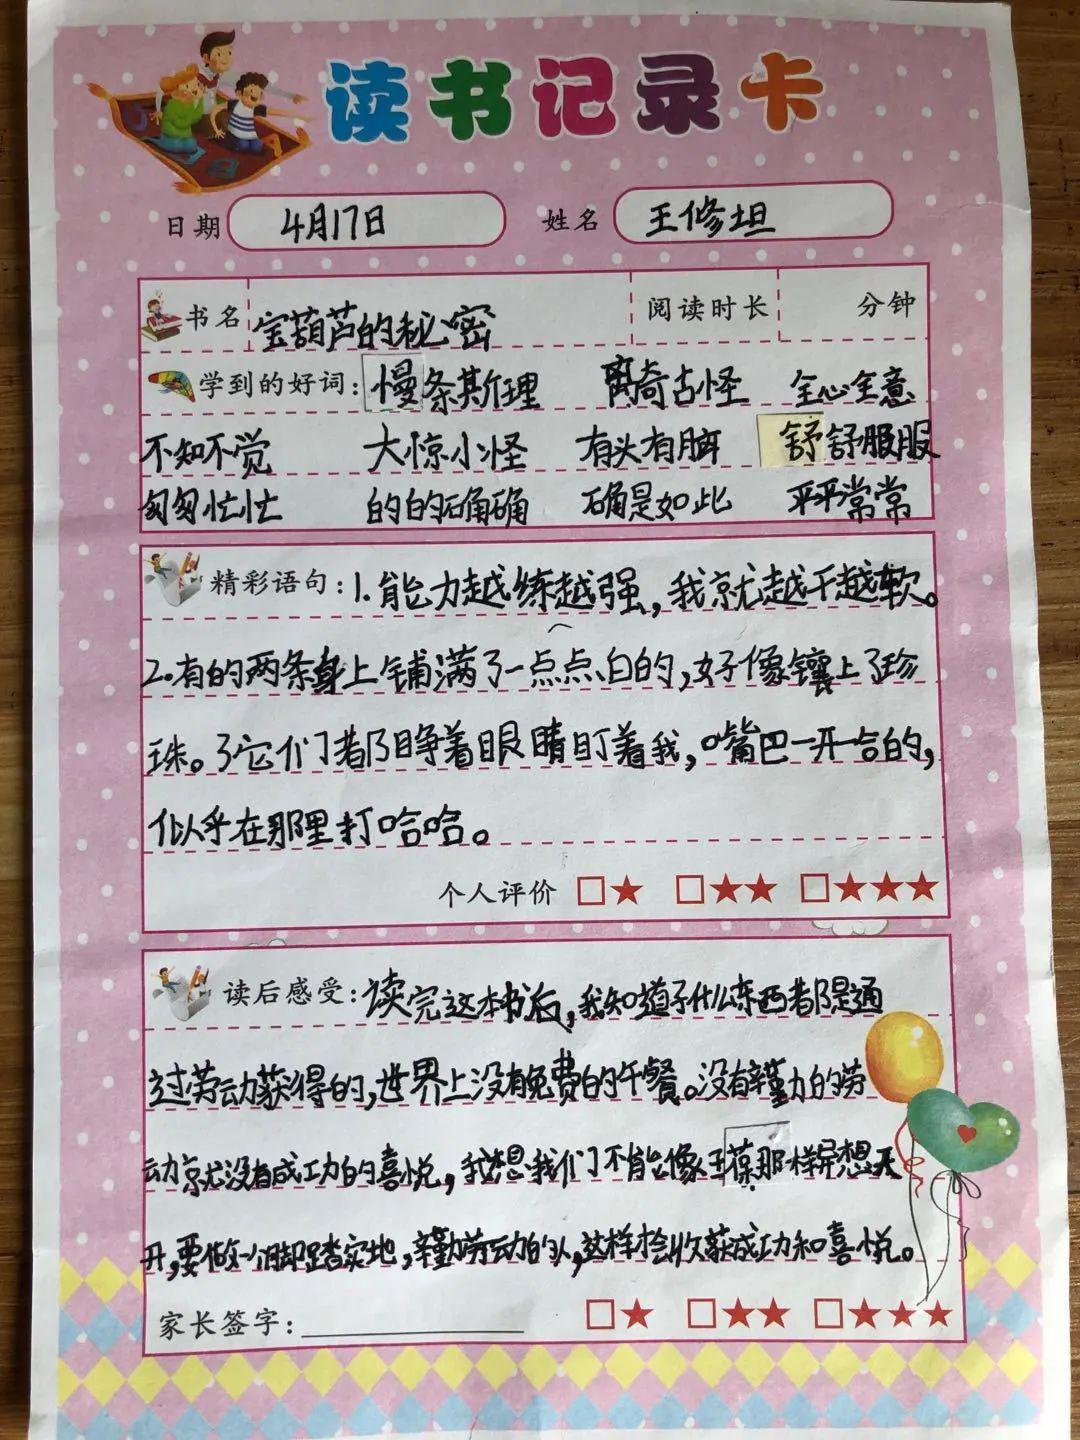 读书记录卡
日期 4月17日 姓名 王修坦
书名 宝葫芦的秘密 阅读时长 分钟
学到的好词：慢条斯理 离奇古怪 全心全意
不知不觉 大惊小怪 有头有脑 舒舒服服
匆匆忙忙 的的确确 确是如此 平平常常
精彩语句：1.能力越练越强，我就越干越软。
2.有的两条身上铺满了一点点白的，好像镶上了珍
珠。了它们都睁着眼睛盯着我，嘴巴一开一合的，
似乎在那里打哈哈。
个人评价 □★ □★★ □★★★
读后感受：读完这本书后，我知道了什么东西都是通
过劳动获得的，世界上没有免费的午餐。没有辛勤的劳
动就没有成功的喜悦，我想我们不能像王葆那样异想天
开，要做一个脚踏实地，辛勤劳动的人，这样才会收获成功和喜悦。
家长签字： □★ □★★ □★★★